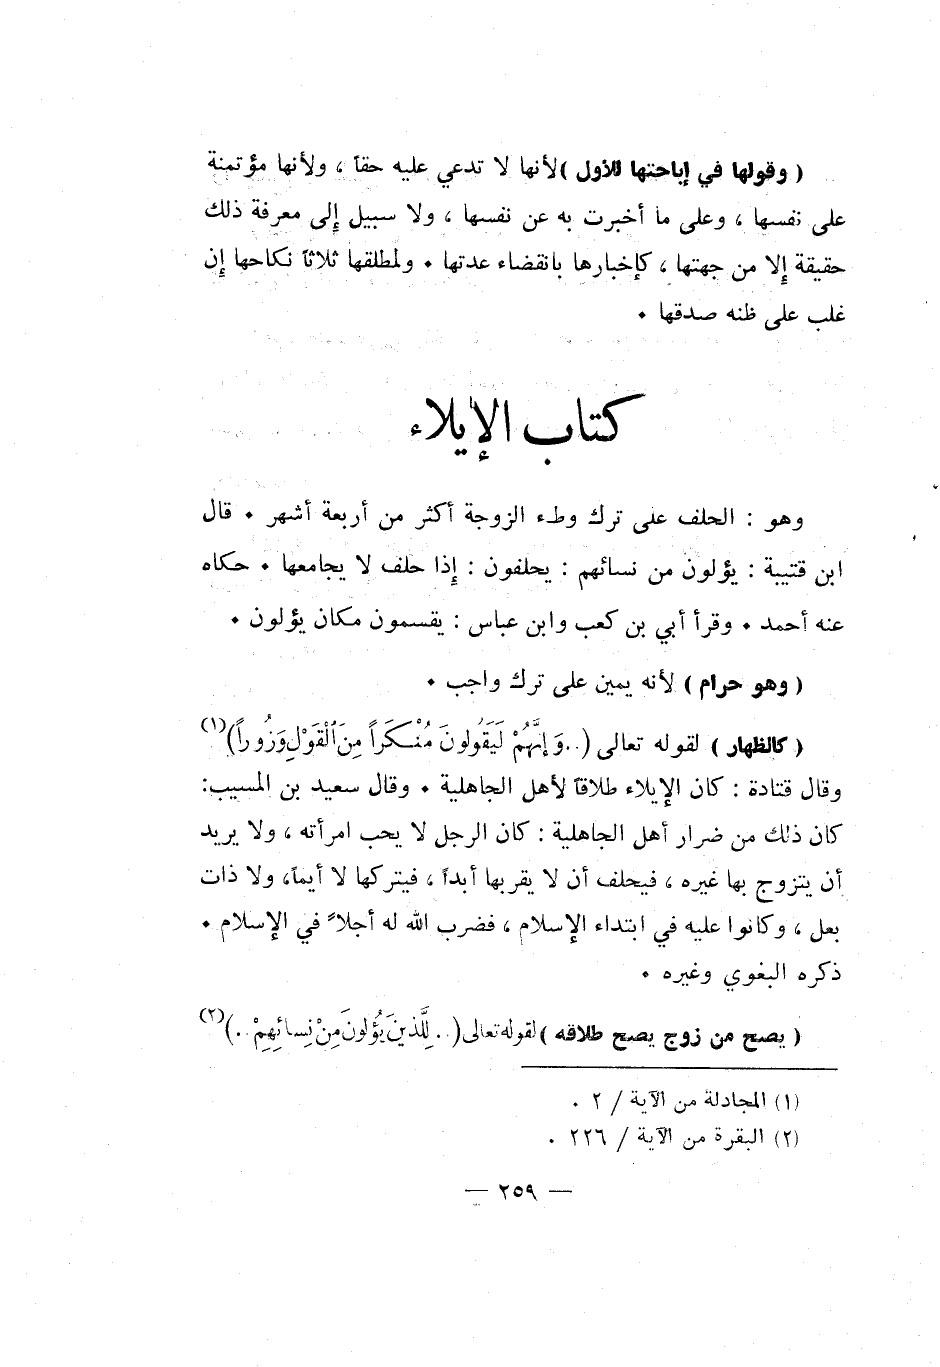 ( وقولها في إباحتها للأول ) لأنها لا تدعي عليه حقاً ، ولأنها مؤتمنة
على نفسها ، وعلى ما أخبرت به عن نفسها ، ولا سبيل إلى معرفة ذلك
حقيقة إلا من جهتها ، كإخبارها بانقضاء عدتها . ولمطلقها ثلاثاً نكاحها إن
غلب على ظنه صدقها .
كتاب الإيلاء
وهو : الحلف على ترك وطء الزوجة أكثر من أربعة أشهر . قال
ابن قتيبة : يؤلون من نسائهم : يحلفون : إذا حلف لا يجامعها . حكاه
عنه أحمد . وقرأ أبي بن كعب وابن عباس : يقسمون مكان يؤلون .
( وهو حرام ) لأنه يمين على ترك واجب .
( كالظهار ) لقوله تعالى (..وَإِنَّهُمْ لَيَقُولُونَ مُنْكَراً مِنَ ٱلْقَوْلِ وَزُوراً)(١)
وقال قتادة : كان الإيلاء طلاقاً لأهل الجاهلية . وقال سعيد بن المسيب:
كان ذلك من ضرار أهل الجاهلية : كان الرجل لا يحب امرأته ، ولا يريد
أن يتزوج بها غيره ، فيحلف أن لا يقربها أبداً ، فيتركها لا أيماً، ولا ذات
بعل ، وكانوا عليه في ابتداء الإسلام ، فضرب الله له أجلاً في الإسلام .
ذكره البغوي وغيره .
( يصح من زوج يصح طلاقه ) لقوله تعالى (.. لِلَّذِينَ يُؤْلُونَ مِنْ نِسائِهِمْ ..)(٢)
(١) المجادلة من الآية / ٢ .
(٢) البقرة من الآية / ٢٢٦ .
— ٢٥٩ —